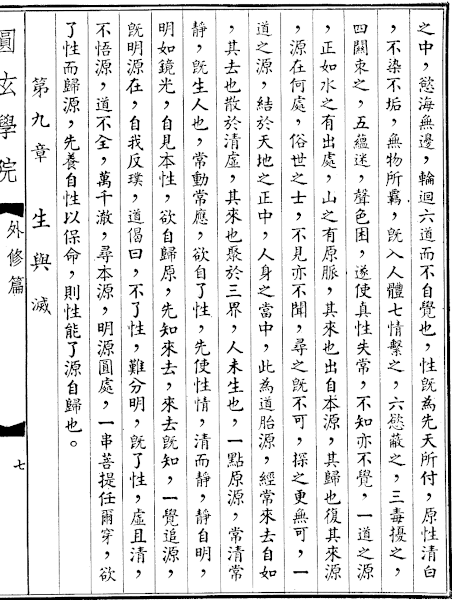 之中，慾海無邊，輪迴六道而不自覺也，性既為先天所付，原性清白
，不染不垢，無物所羈，既入人體七情繫之，六慾蔽之，三毒擾之，
四關束之，五蘊迷，聲色困，遂使真性失常，不知亦不覺，一道之源
，正如水之有出處，山之有原脈，其來也出自本源，其歸也復其來源
，源在何處，俗世之士，不見亦不聞，尋之既不可，探之更無可，一
道之源，結於天地之正中，人身之當中，此為道胎源，經常來去自如
，其去也散於清虛，其來也聚於三界，人未生也，一點原源，常清常
靜，既生人也，常動常應，欲自了性，先使性情，清而靜，靜自明，
明如鏡光，自見本性，欲自歸原，先知來去，來去既知，一覺追源，
既明源在，自我反璞，道偈曰，不了性，難分明，既了性，虛且清，
不悟源，道不全，萬千澈，尋本源，明源圓處，一串菩提任爾穿，欲
了性而歸源，先養自性以保命，則性能了源自歸也。
第九章　生與滅
圓玄學院【外修篇　七